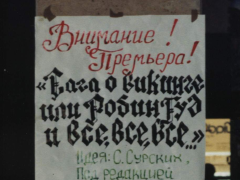 Внимание!
Премьера!
«Сага о викинге
или Робин Гуд
и все, все, все...»
Идея: С. Сурских,
Под редакцией